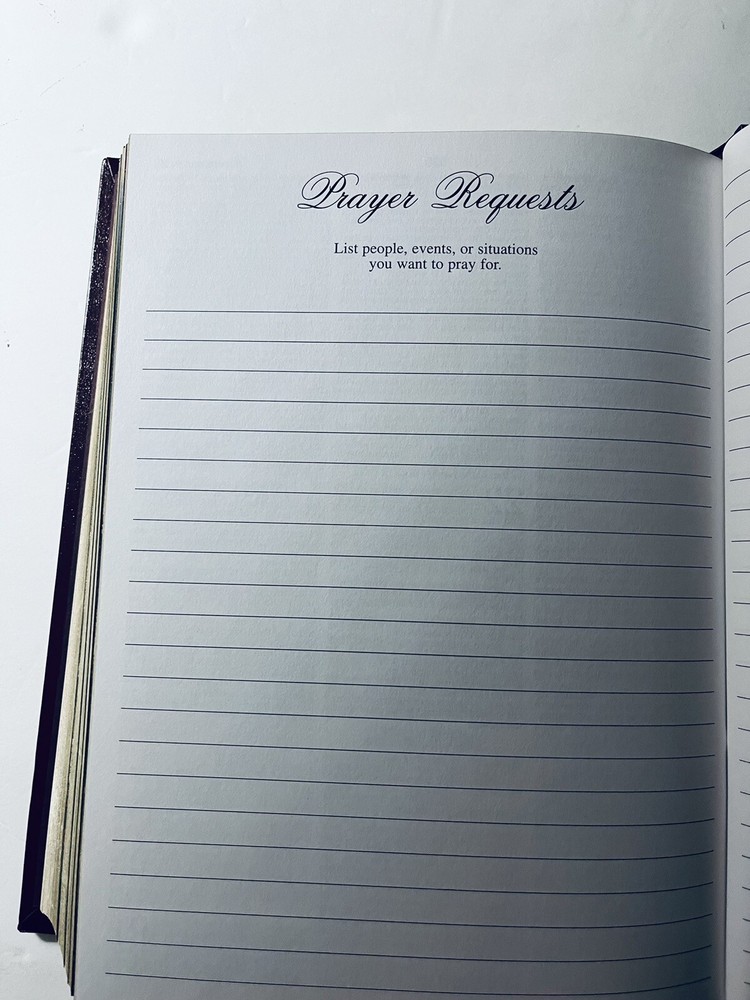 Prayer Requests
List people, events, or situations
you want to pray for.